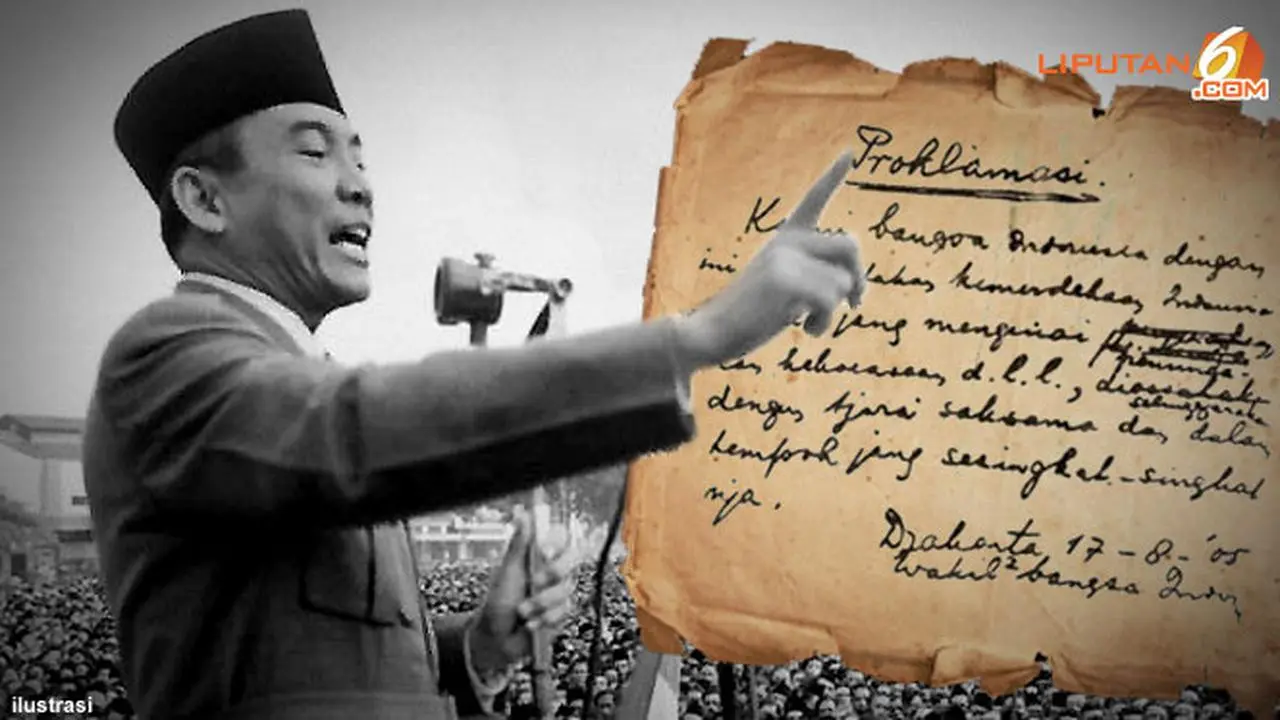 LIPUTAN 6
.COM
Proklamasi.
bangsa Indonesia dengan
ini kemerdekaan Indonesia
jang mengenai
kekoeasaan d.l.l., diselenggarakan
dengan tjara saksama dan dalam
tempoh jang sesingkat-singkat
nja.
Djakarta 17 - 8 - '05
Wakil2 bangsa Indon
ilustrasi